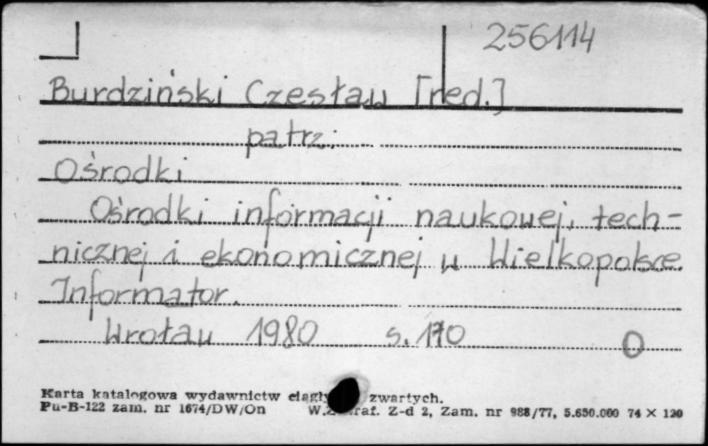 256114
Burdziński Czesław [red.]
patrz:
Ośrodki
Ośrodki informacji naukowej, tech-
nicznej i ekonomicznej w Wielkopolsce.
Informator.
Wrocław 1980 s. 170
Karta katalogowa wydawnictw zwartych.
Pu-B-122 zam. nr 1674/DW/On Z-d 2, Zam. nr 988/77, 5.650.000 74 × 120